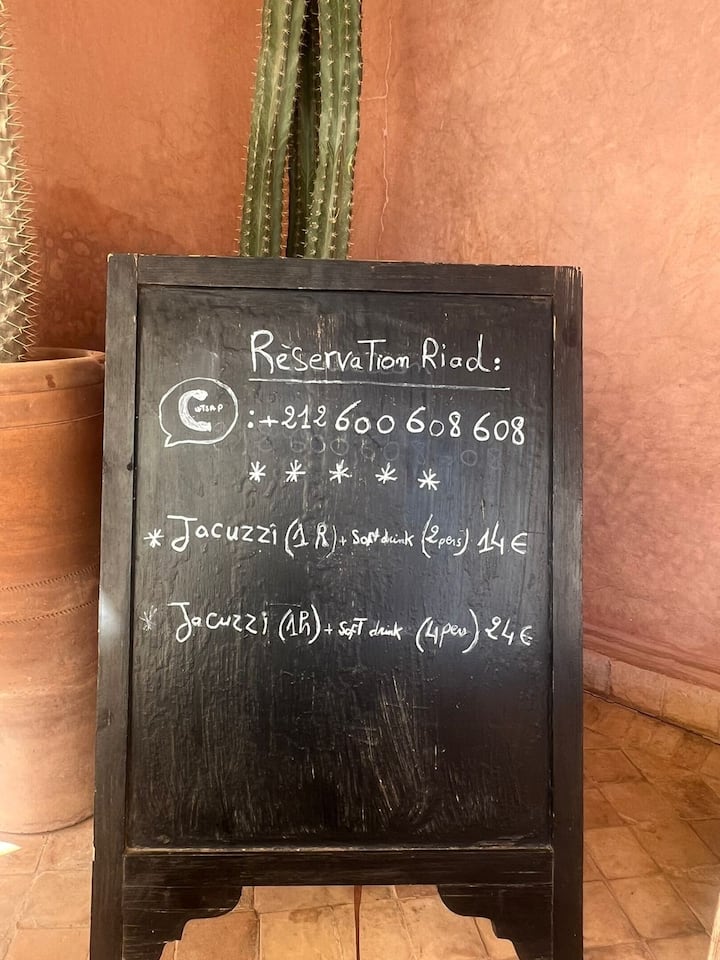 Rèservation Riad:
wtsap : +212 600 608 608
* * * * *
* Jacuzzi (1 R) + Soft drink (2pers) 14 €
* Jacuzzi (1R) + Soft drink (4pers) 24 €